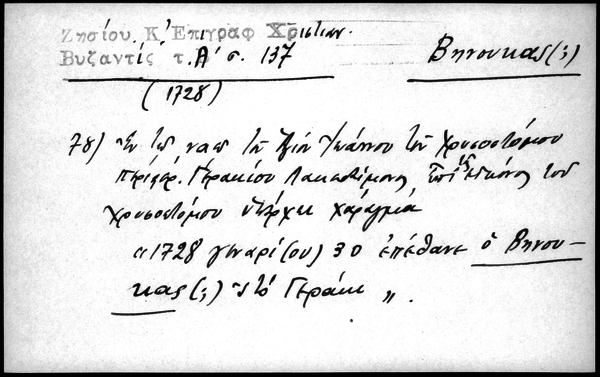 Ζησίου Κ. Ἐπιγραφ Χριστιαν.
Βυζαντίς τ. Α' σ. 137
Βηνουκας(;)
(1728)
78) Ἐν τῷ ναῷ τοῦ Ἁγίου Ἰωάννου τοῦ Χρυσοστόμου
περιφερ. Γερακίου Λακεδαίμονος ἐπὶ εἰκόνος τοῦ
Χρυσοστόμου ὑπάρχει χάραγμα
"1728 γεναρί(ου) 30 ἐπέθανε ὁ Βηνου-
κας(;) στὸ Γεράκι".